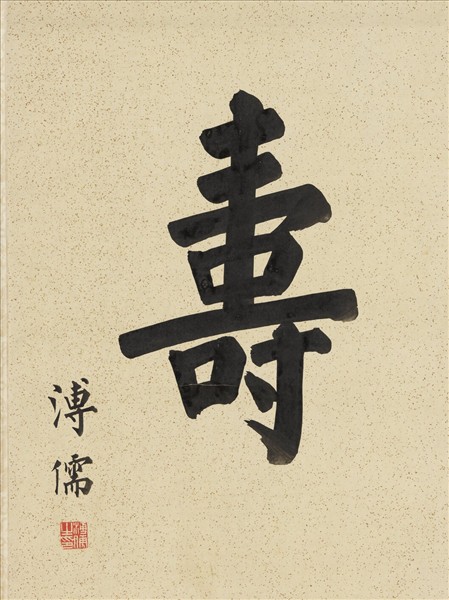 壽
溥儒